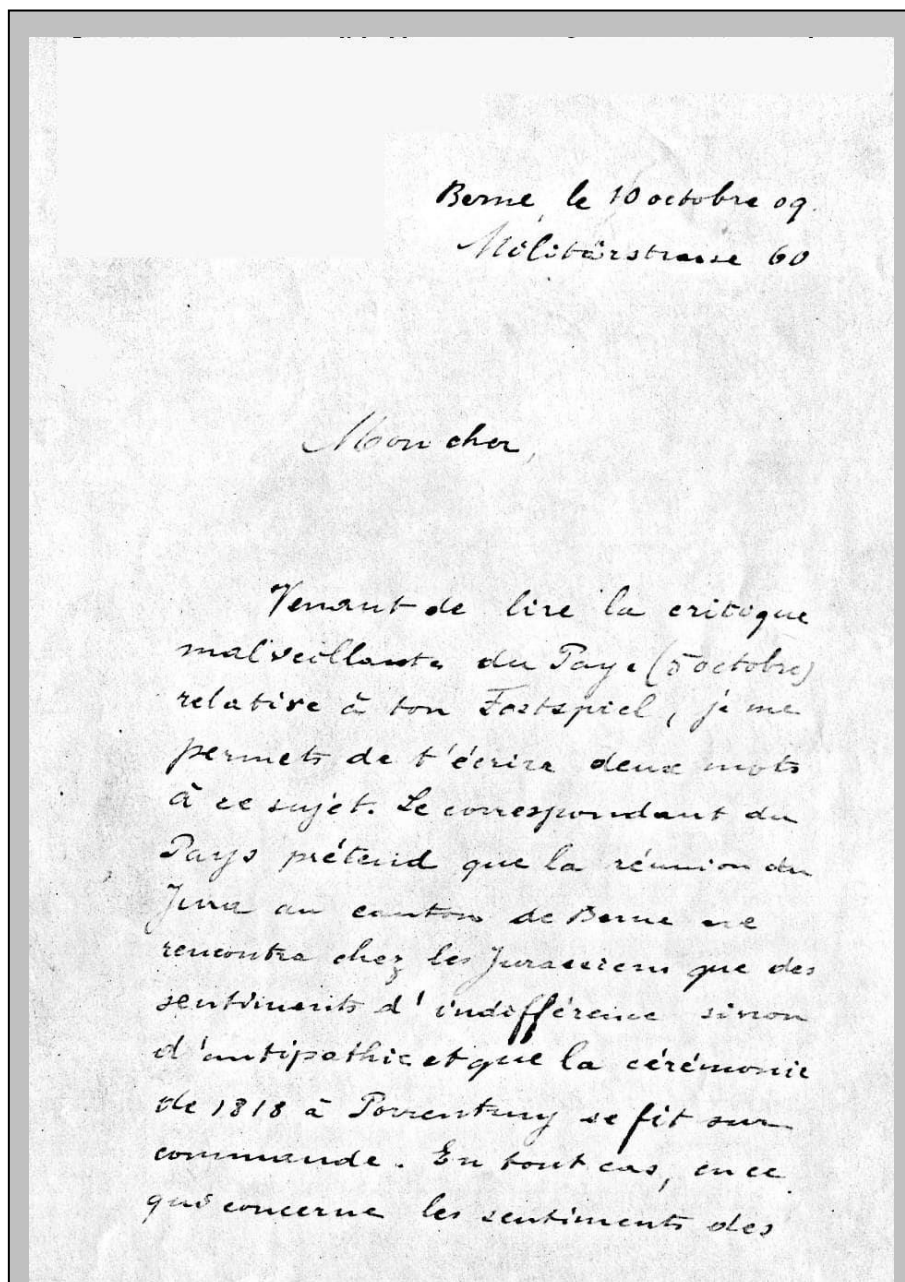 Berne, le 10 octobre 09.
Militärstrasse 60
Mon cher,
Venant de lire la critique
malveillante du Pays (5 octobre)
relative à ton Festspiel, je me
permets de t'écrire deux mots
à ce sujet. Le correspondant du
Pays prétend que la réunion du
Jura au canton de Berne ne
rencontra chez les Jurassiens que des
sentiments d'indifférence sinon
d'antipathie et que la cérémonie
de 1818 à Porrentruy se fit sur
commande. En tout cas, en ce
qui concerne les sentiments des